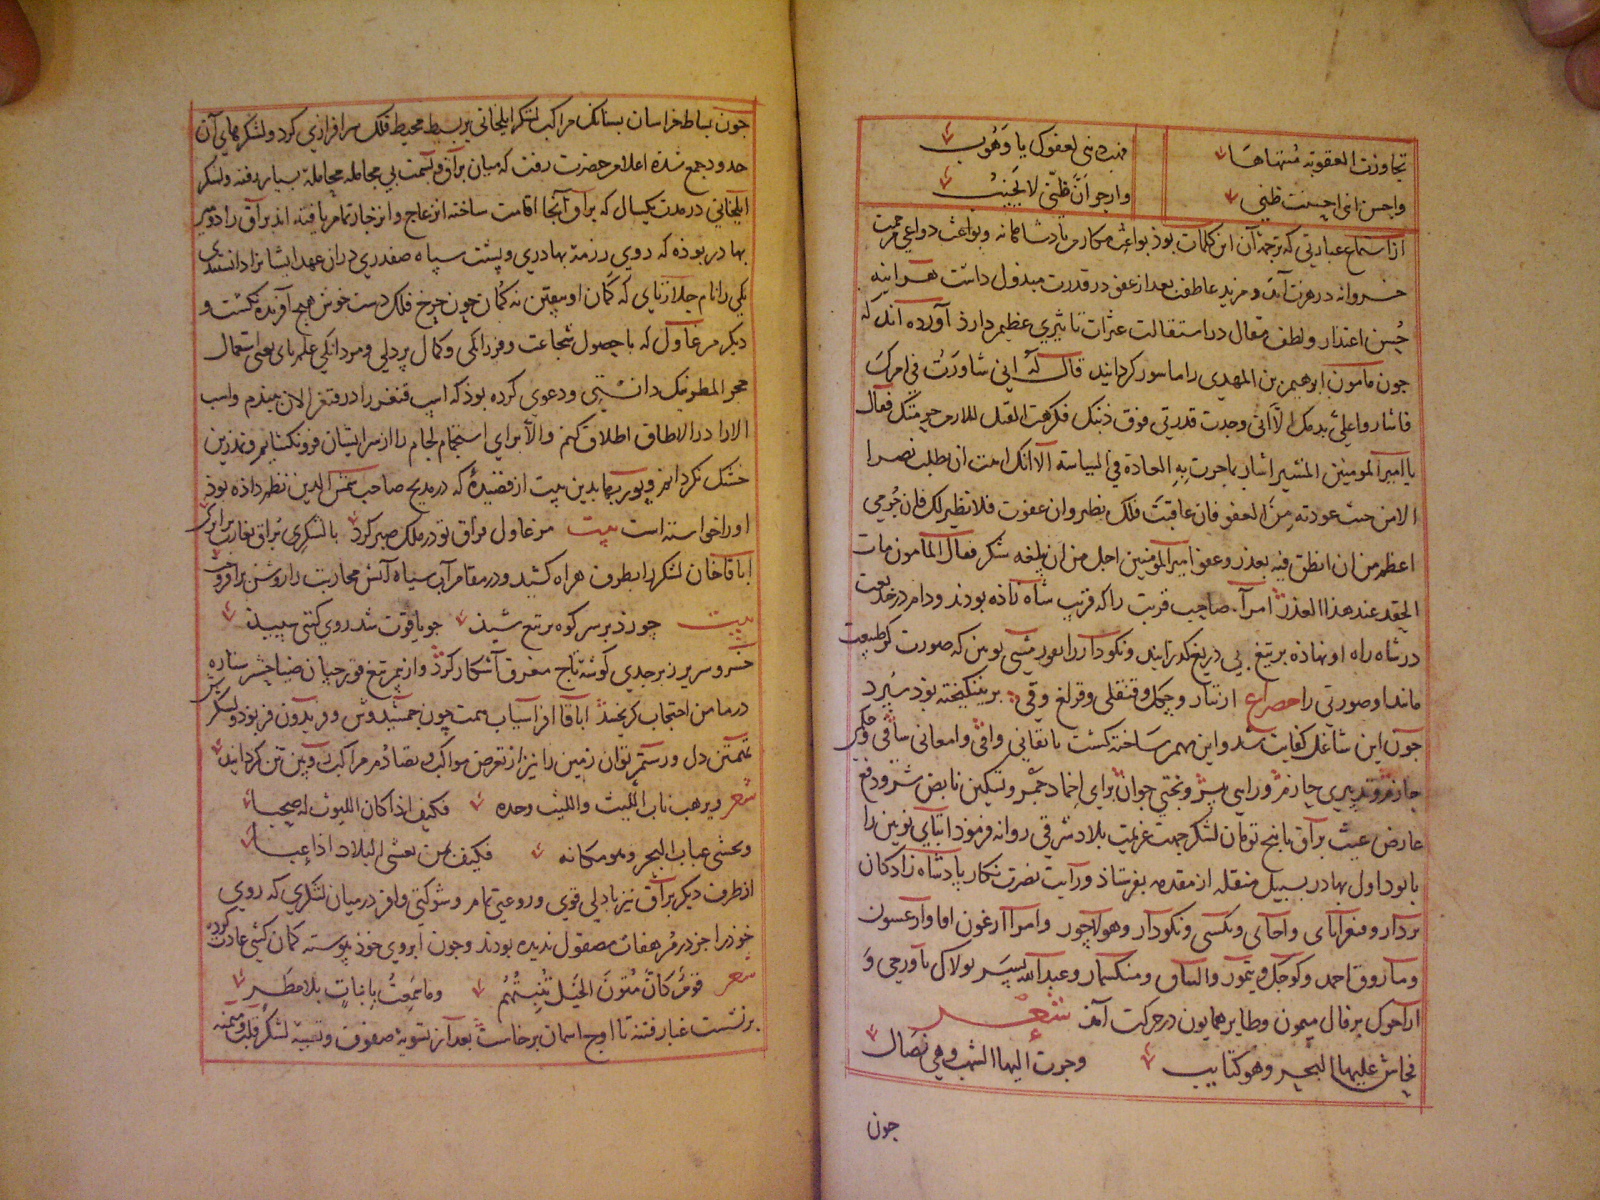 تجاوزت العقوبة منتهاها فهب ذنبی لعفوک یا وهوب
واحسن اننی احسنت ظنی وارجو ان ظنی لا یخیب
از استماع عبارتی که ترجمهٔ آن این کلمات بوذ بواعث مکارم پادشاهانه و بواعث دواعی مرحمت
خسروانه در هزت آمد و مزید عاطفت بعد از عفو در قدرت مبذول داشت هر آینه
حسن اعتذار ولطف مقال در استقالت عثرات تاثیری عظیم دارذ آورده اند که
جون مامون ابرهیم بن المهدی را ماسور کردانید قال له انی شاورت فی امرک
فاشاروا علی بدمک الا انی وجدت قدرتی فوق ذنبک فکرهت القتل للازم حرمتک فقال
یا امیر المومنین المشیر اشار بما جرت به العادة فی السیاسة الا انک ابیت ان تطلب نصرا
الا من حیث عودته من العفو فان عاقبت فلک نظیر وان عفوت فلا نظیر لک فان جرمی
اعظم من ان انطق فیه بعذر وعفو امیر المومنین اجل من ان یبلغه شکر فقال المامون مات
الحقد عند هذا العذر امرآ صاحب قربت را که قریب شاه تاذه بودند ودام در خدیعت
در شاه راه او نهاذه بر تیغ بی دریغ کذرانید ونکودار را بعد مشی نوین که صورت کو طبیعت
ماند او صورتی را مصراع از تتار و چکل و قنقلی و قرلغ وقی برینکیخته بوذ سپرد
جون این شاغل کفایت شد و این مهم ساخته کشت با تقانی واثق وامعانی سابق و حکمی
جازم و تدبیری جازم و رایی پیر و بختی جوان برای اخماد جمر و تسکین نابض شر و دفع
عارض عیث براق با پنج تومان لشکر جهت عزیمت بلاد شرقی روانه فرمود ابتای نوین را
با بودا ول بهادر بسبیل منقله از مقدمه بفرستاذ ورایت نصرت نکار پادشاه زادکان
و امرا ارغون اقا
احمد وکوجک و تیمور وعبد الله پسر بولاک یاورجی و
بر فال میمون وطایر همایون در حرکت آمذ شعر
فجاش علیها البحر وهو کتایب وجرت الیها الشهب وهی نصال
جون
جون بساط خراسان بسنابک مراکب لشکر ایلخانی بر بسیط محیط فلک سرافرازی کرد و لشکرهای آن
حدود جمع شذه اعلام حضرت رفت که میان براق و تبسمت بی مجامله مجامله بسیار رفته ولشکر
ایلخانی در مدت یکسال که براق آنجا اقامت ساخته انزعاج وانزجار تمام یافته اند براق را دو
بهادر بوذه که روی رزمه بهادری و پشت سپاه صفدری دران عهد ایشانرا دانستندی
یکی را نام جلایرتای که کمان او سفتن نه کمان چون چرخ فلک دست خوش هیچ آفریده نکشت و
دیکر مرغاول که با حصول شجاعت وفرزانکی وکمال پردلی ومردانکی علم یای یعنی استعمال
حجر المطر نیک دانستی ودعوی کرده بوذ که اسب قنغر را در قنغر الان ببندم واسب
الا را در الاطاق اطلاق کنم والا برای استجمام لجام را از سر ایشان فرو نکنم و نمد زین
خشک نکردانم وپور بها بدین بیت از قصیدهٔ که در مدیح صاحب شمس الدین نظم داذه بوذ
او را خواسته است بیت مرغاول براق تو در ملک صبر کرد با لشکری براق بغارت برابرک
اباقاخان لشکر را بطرف هراه کشید و در مقام آب سیاه آتش محاربت را روشن برافروخت
بیت چو زذ بر سر کوه بر تیغ شیذ چو یاقوت شد روی کیتی سپیذ
خسرو سریر زبرجدی کوشهٔ تاج مفرق آشکار کرذ واز بیم تیغ فیروز حیان ضیا حشر ستاره
در مامن احتجاب کریختند اباقا افراسیاب سمت چون جمشید وش و فریدون فر بوذ و لشکر
تهمتن دل ورستم توان زمین را نیز از تعرض مواکب و تصادم مراکب رویین تن کردانید
شعر ویرهب ناب اللیث واللیث وحده فکیف اذا کان اللیوث له صحبا
ویخشی عباب البحر وهو مکانه فکیف بمن یغشی البلاد اذا عبا
از طرف دیکر براق نیز با دلی قوی و روعتی تمام وشوکتی وافر در میان لشکری که روی
خوذ را جز در مرهفات مصقول ندیده بودند وجون ابروی خوذ پیوسته کمان کشی عادت کرده
شعر قوم کان متون الخیل تنبتهم وما سمعت بانبات بلا مطر
برنشست غبار فتنه تا اوج اسمان برخاست بعد از تسویهٔ صفوف وتعبیهٔ لشکر قلب و میمنه